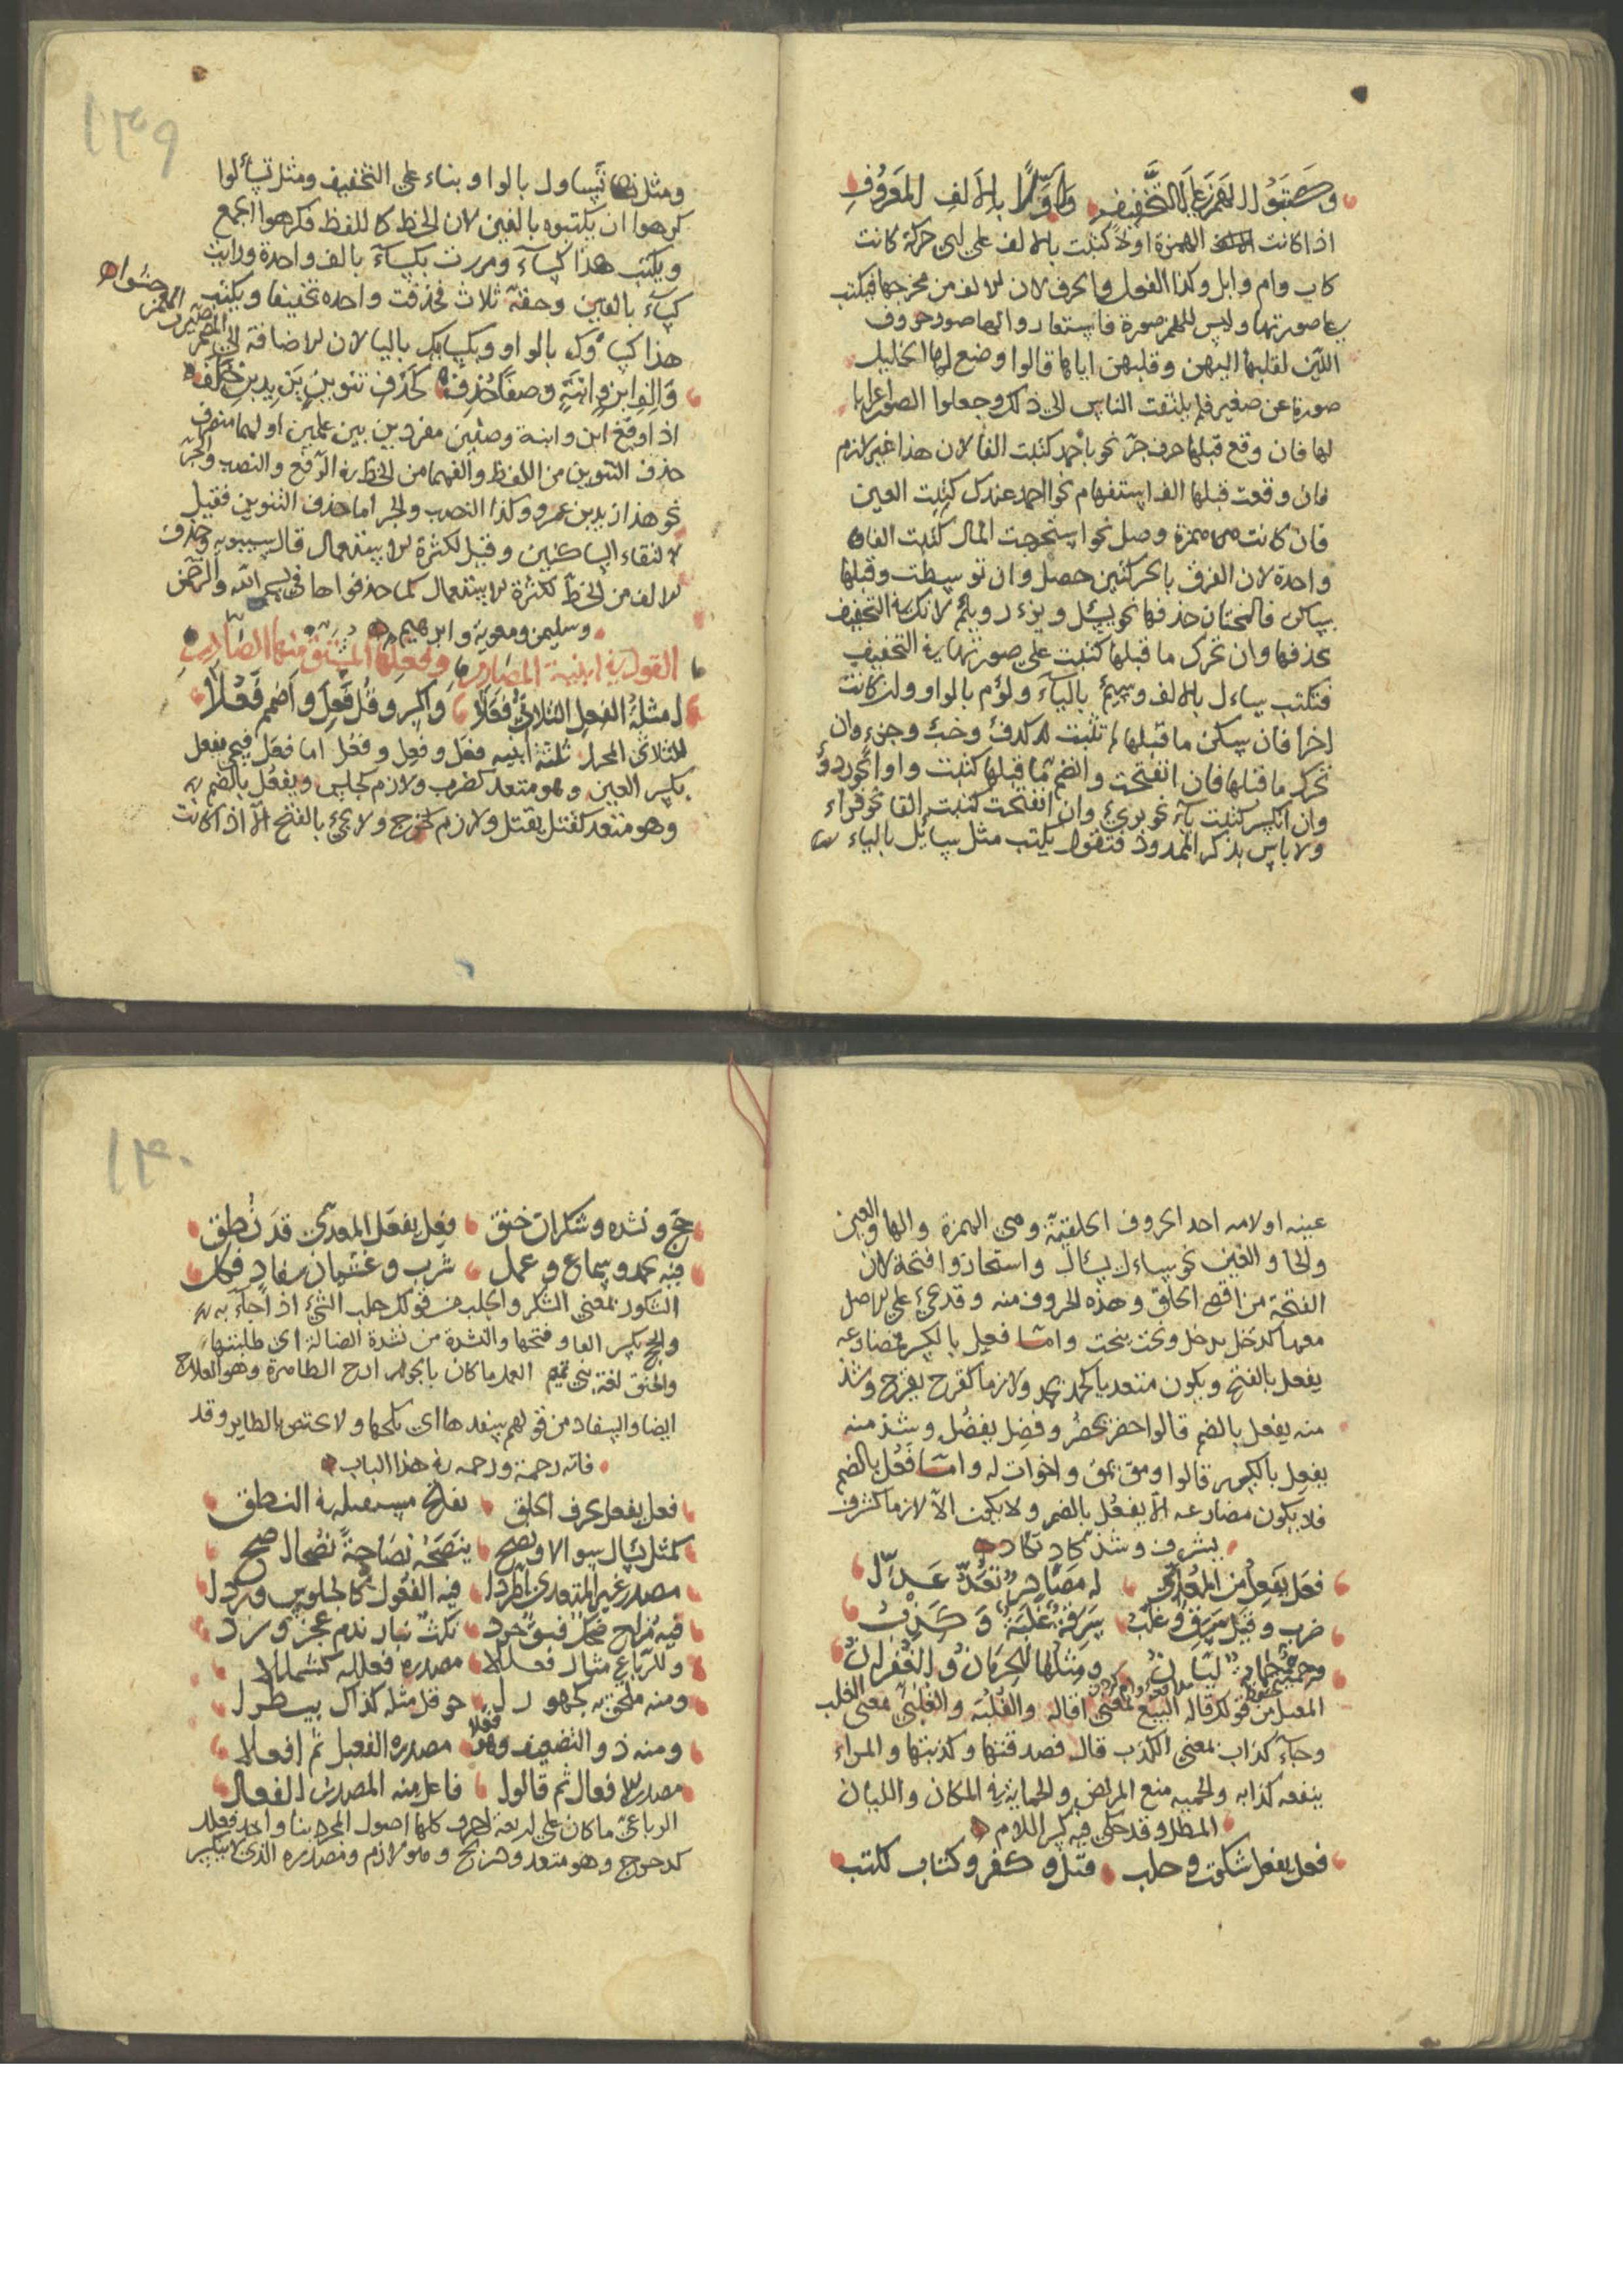 وكتبوا الهمز على التخفيف وأولا بالالف المعروف
اذا كانت الهمزة اولا كتبت بالالف على اى حركة كانت
كاب وام وابل وكذا القول والحرف لان الالف من مخرجها فيكتب
على صورتها وليس للهمز صورة فاستعاروا لها صور حروف
اللين لقلبها اليهن وقلبهن اياها قالوا وضع لها الخليل
صورة عين صغير فلم يلتفت الناس الى ذلك وجعلوا الصور اعرابا
لها فان وقع قبلها حرف جر نحو باحمد كتبت الفا لان هذا غير لازم
فان وقعت قبلها الف استفهام نحو ااحمد عندك كتبت الفين
فان كانت همزة وصل نحو استخرجت المال كتبت الفا
واحدة لان الفرق بالحركتين حصل وان توسطت وقبلها
ساكن فالمختار حذفها نحو يسئل ويزءر ويلئم لانك في التخفيف
تحذفها وان تحرك ما قبلها كتبت على صورتها في التخفيف
فتكتب ساءل بالالف وسئم بالياء ولؤم بالواو وان كانت
اخرا فان سكن ما قبلها لم تثبت كدفء وخبء وجزء وان
تحرك ما قبلها فان انفتحت وانضم ما قبلها كتبت واوا نحو ردؤ
وان انكسر كتبت ياء نحو برئ وان انفتحت كتبت الفا نحو قراء
ولا باس بذكر الممدود فتقول يكتب مثل سائل بالياء
١٣٩
ومثل تساول بالواو بناء على التخفيف ومثل تسألوا
كرهوا ان يكتبوه بالفين لان الخط كاللفظ فكرهوا الجمع
ويكتب هذا كساء ومررت بكساء بالف واحدة ورايت
كساء بالفين وحقه ثلاث فحذفت واحده تخفيفا ويكتب
هذا كساؤك بالواو وبكسائك باليا لان الاضافة الى المضمر صيرت الهمز حشوا
والف ابن وابنة وصفا حذف كحذف تنوين يزيد بن خلف
اذا وقع ابن وابنة وصفين مفردين بين علمين او لهما منصرف
حذف التنوين من اللفظ والفهما من الخط في الرفع والنصب والجر
نحو هذا زيد بن عمرو وكذا النصب والجر اما حذف التنوين فقيل
لالتقاء الساكنين وقيل لكثرة الاستعمال قال سيبويه وحذف
الالف من الخط لكثرة الاستعمال كما حذفوا ها في بسم الله والرحمن
وسليمن ومعوية وابرهيم
القول في ابنية المصادر وفعلها المشتق منها الصادر
امثلة الفعل الثلاثي فعلا واكسر وقل فعل واضمم فعلا
للثلاثي المجرد ثلثة ابنيه فعل وفعل وفعل اما فعل فيجئ يفعل
بكسر العين وهو متعد كضرب ولازم كجلس ويفعل بالضم
وهو متعد كقتل يقتل ولازم كخرج ولا يجئ بالفتح الا اذا كانت
عينه او لامه احد الحروف الحلقية وهى الهمزة والها والعين
والحا والغين نحو ساءل يسال واستحازوا فتحه لان
الفتحة من اقصى الحلق وهذه الحروف منه وقد يجئ على الاصل
معها كدخل يدخل ونحت ينحت واما فعل بالكسر فمضارعه
يفعل بالفتح ويكون متعديا كحمد يحمد ولازما كفرح يفرح وشذ
منه يفعل بالضم قالوا حضر يحضر وفضل يفضل وشذ منه
يفعل بالكسر قالوا ومق يمق واخوات له واما فعل بالضم
فلا يكون مضارعه الا يفعل بالضم ولا يكون الا لازما كشرف
يشرف وشذ كاد تكاد
فعل يفعل من المعدى له مصادر تعد عدا
ضرب وقيل سرق وغلب سرقة غلبة وكذب
وحمية حماية ليان ومثلها الحرمان والغفران
المقيل من قولك قاله البيع بمعنى اقاله والغلبة والغلبى معنى الغلب
وجاء كذاب بمعنى الكذب قال فصدقتها وكذبتها والمراء
ينفعه كذابه والحميه منع المريض والحماية في المكان والليان
المطل وقد حكى فيه كسر اللام
فعل يفعل شكرت وحلب قتل وكفر وكتاب لكتب
١٤٠
حج ونشده وشكران خنق فعل يفعل المعدى قد نطق
فيه بحمد وسماع وعمل شرب وغشيان سفاد فكل
الشكور بمعنى الشكر والجلب من قولك جلب الشئ اذا جاء به
والحج بكسر الفا وفتحها والنشدة من نشدة الضالة اى طلبتها
والخنق لغة بنى تميم العمد ما كان بالجوارح الظاهرة وهو العلاج
ايضا والسفاد من قولهم سفدها اى نكحها ولا يختص بالطاير وقد
فاته رحمة ورحمه في هذا الباب
فعل يفعل بحرف الحلق يفتح مستقبله في النطق
كمثل يسال سوالا ونصح ينصحه نصاحة نصحا صح
مصدر غير المتعدى اطردا فيه الفعول كالجلوس وردا
فيه مزاح ضحك فسق حرد نكث نبار ندم عجز ورد
وللرباعي مثال فعللا مصدره فعللة كشمللا
ومنه ملحق به كجهورا حوقل مثله كذاك بيطرا
ومنه ذو التضعيف وهو فعلا مصدره الفعيل ثم افعلا
مصدره لافعال ثم قالوا فاعل منه المصدر الفعال
الرباعى ما كان على اربعة احرف كلها اصول المجرد بناء واحد فعلل
كدحرج وهو متعد وهو لازم ومصدره الذى لا ينكسر